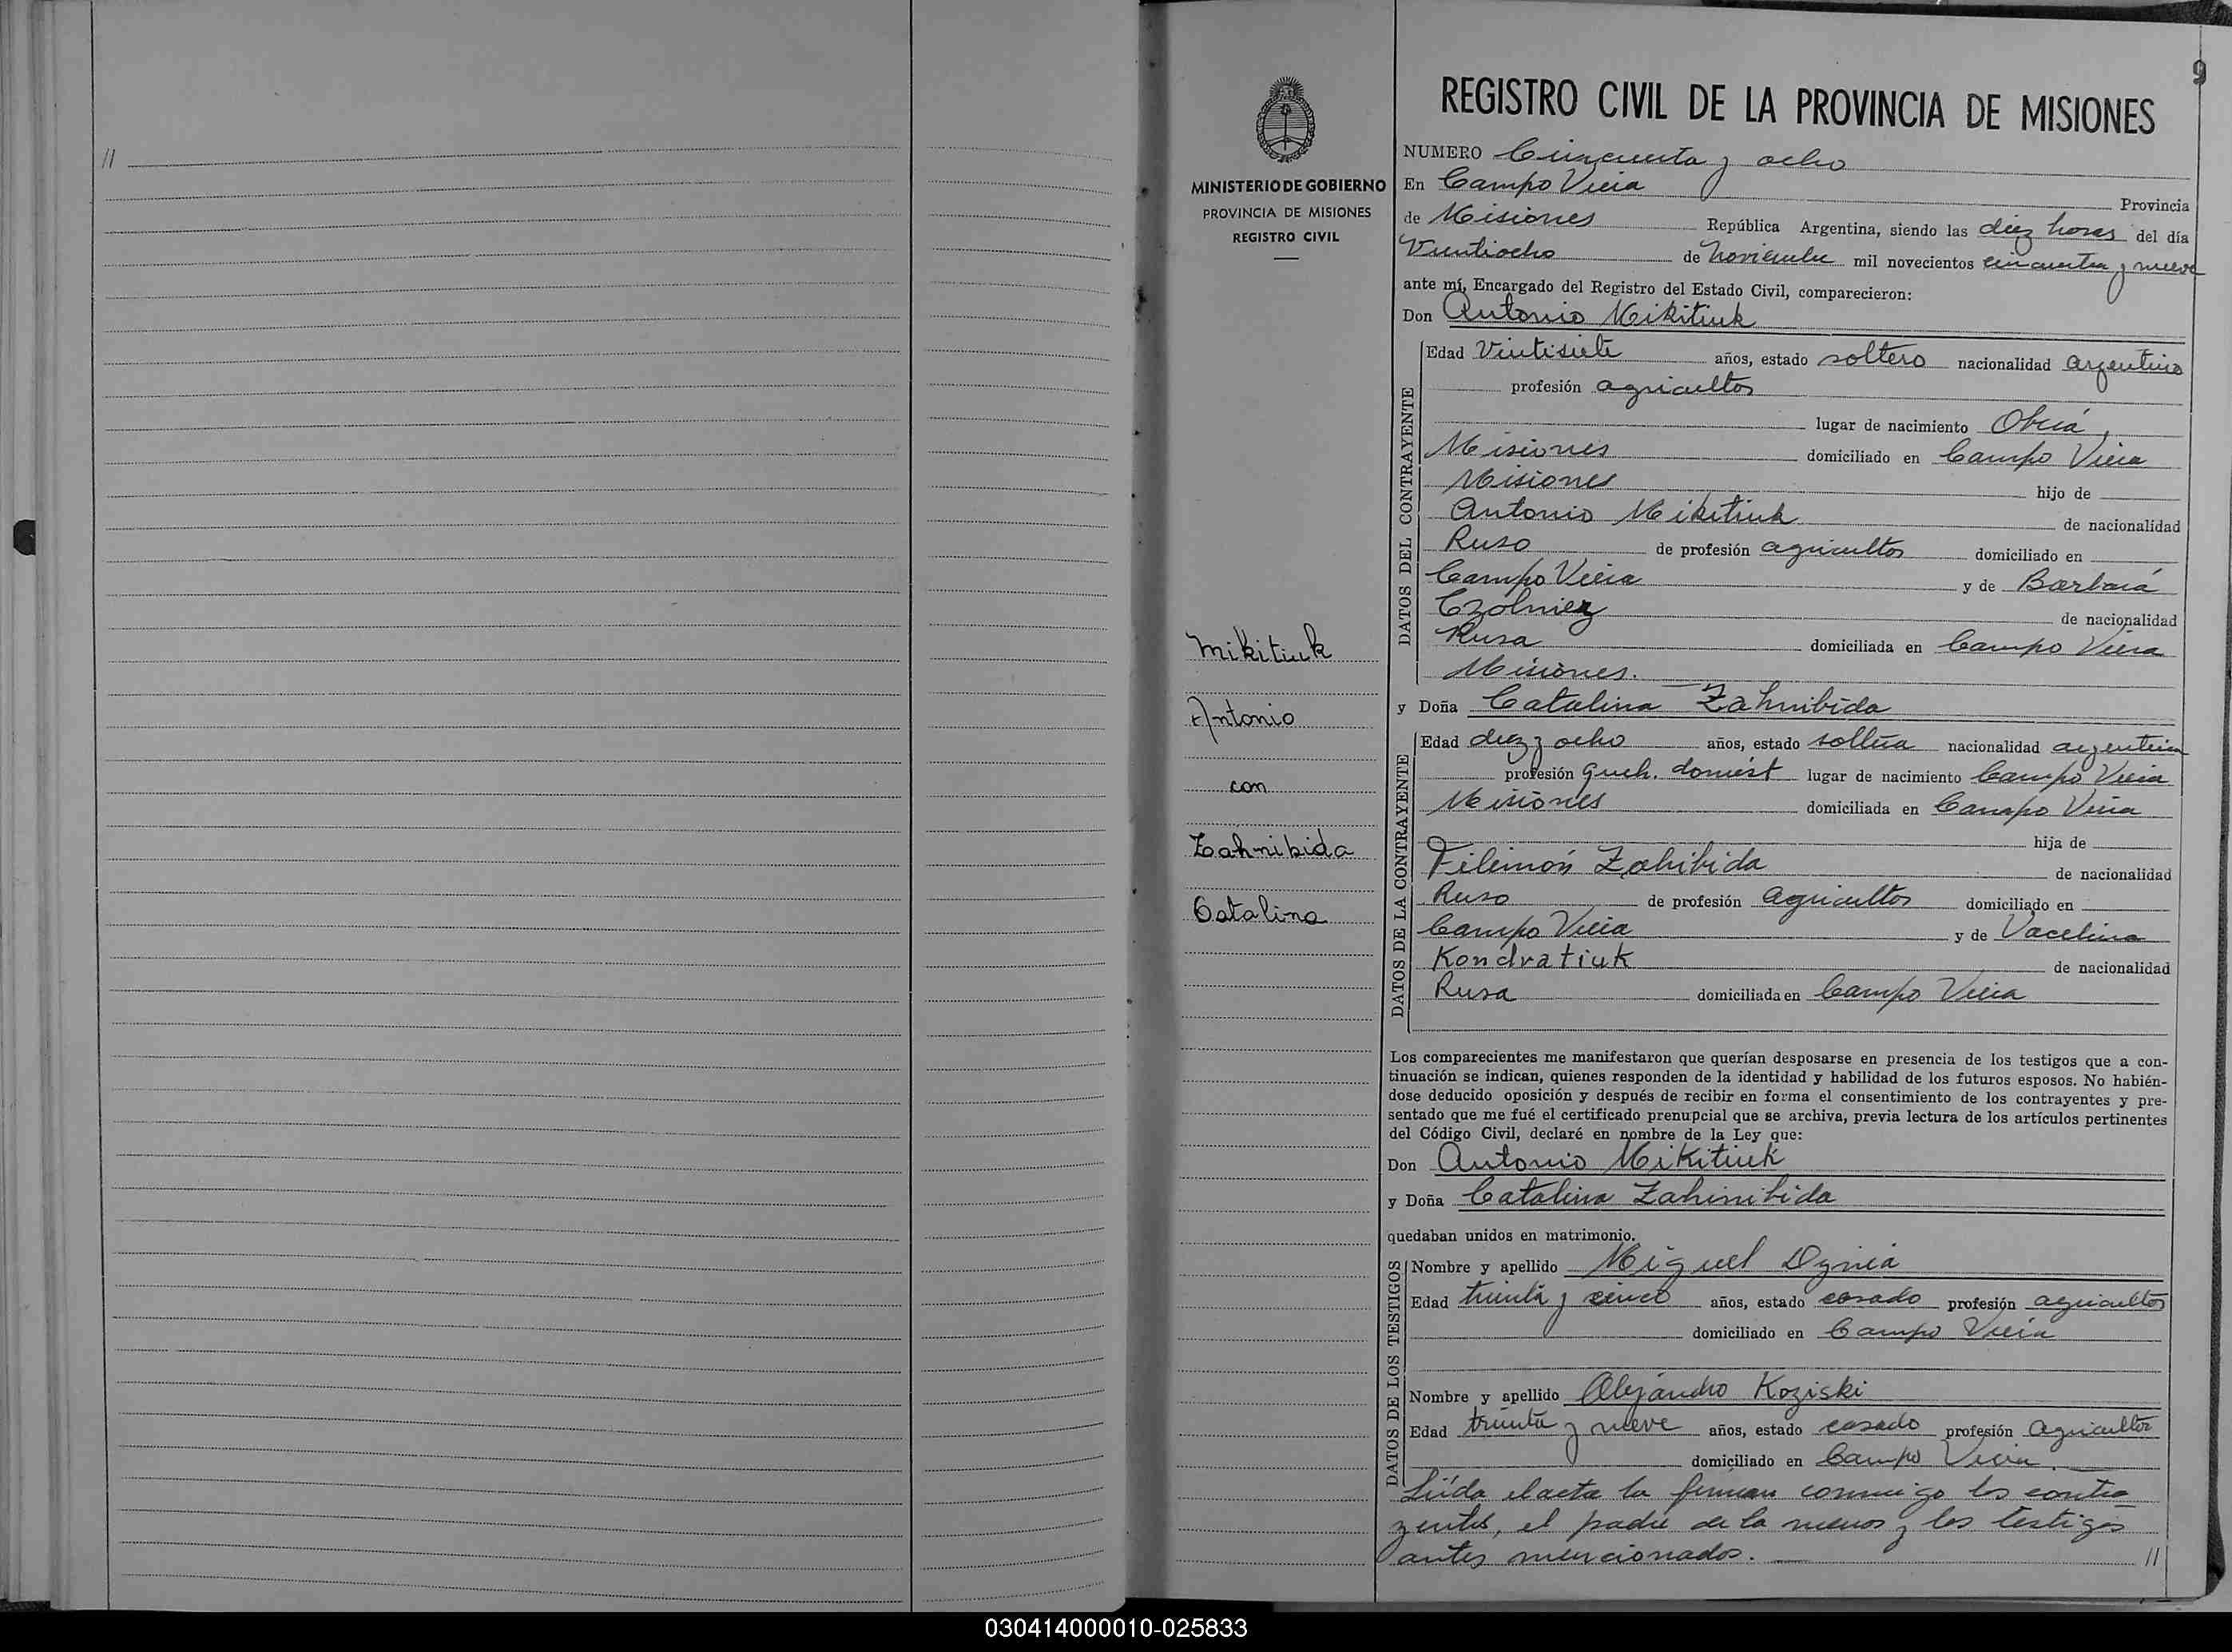 //
9
MINISTERIO DE GOBIERNO
PROVINCIA DE MISIONES
REGISTRO CIVIL
Mikitiuk
Antonio
con
Zahnibida
Catalina
REGISTRO CIVIL DE LA PROVINCIA DE MISIONES
NUMERO Cincuenta y ocho
En Campo Viera Provincia
de Misiones República Argentina, siendo las diez horas del día
Veintiocho de Noviembre mil novecientos cincuenta y nueve
ante mí, Encargado del Registro del Estado Civil, comparecieron:
Don Antonio Mikitiuk
DATOS DEL CONTRAYENTE
Edad Veintisiete años, estado soltero nacionalidad argentino
profesión agricultor
lugar de nacimiento Oberá,
Misiones domiciliado en Campo Viera
Misiones hijo de
Antonio Mikitiuk de nacionalidad
Ruso de profesión agricultor domiciliado en
Campo Viera y de Barbará
Czolniez de nacionalidad
Rusa domiciliada en Campo Viera
Misiones.
y Doña Catalina Zahnibida
DATOS DE LA CONTRAYENTE
Edad diez y ocho años, estado soltera nacionalidad argentina
profesión queh. domést lugar de nacimiento Campo Viera
Misiones domiciliada en Campo Viera
hija de
Filemón Zahibida de nacionalidad
Ruso de profesión agricultor domiciliado en
Campo Viera y de Vacelina
Kondratiuk de nacionalidad
Rusa domiciliada en Campo Viera
Los comparecientes me manifestaron que querían desposarse en presencia de los testigos que a con-
tinuación se indican, quienes responden de la identidad y habilidad de los futuros esposos. No habién-
dose deducido oposición y después de recibir en forma el consentimiento de los contrayentes y pre-
sentado que me fué el certificado prenupcial que se archiva, previa lectura de los artículos pertinentes
del Código Civil, declaré en nombre de la Ley que:
Don Antonio Mikitiuk
y Doña Catalina Zahinibida
quedaban unidos en matrimonio.
DATOS DE LOS TESTIGOS
Nombre y apellido Miguel Dynia
Edad treinta y cinco años, estado casado profesión agricultor
domiciliado en Campo Viera
Nombre y apellido Alejandro Koziski
Edad treinta y nueve años, estado casado profesión agricultor
domiciliado en Campo Viera.
Leída el acta la firman conmigo los contra
yentes, el padre de la menor y los testigos
antes mencionados. //
030414000010-025833